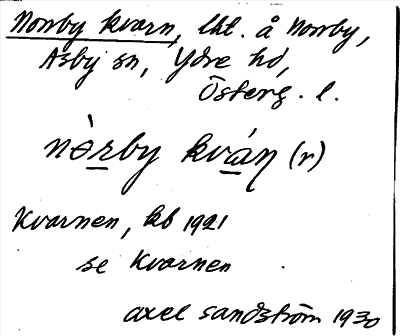 Norrby kvarn, lht. å Norrby,
Asby sn, Ydre hd,
Österg. l.
nò̱rby kvá̱ɳ (r)
Kvarnen, kb 1921
se Kvarnen
axel sandström 1930